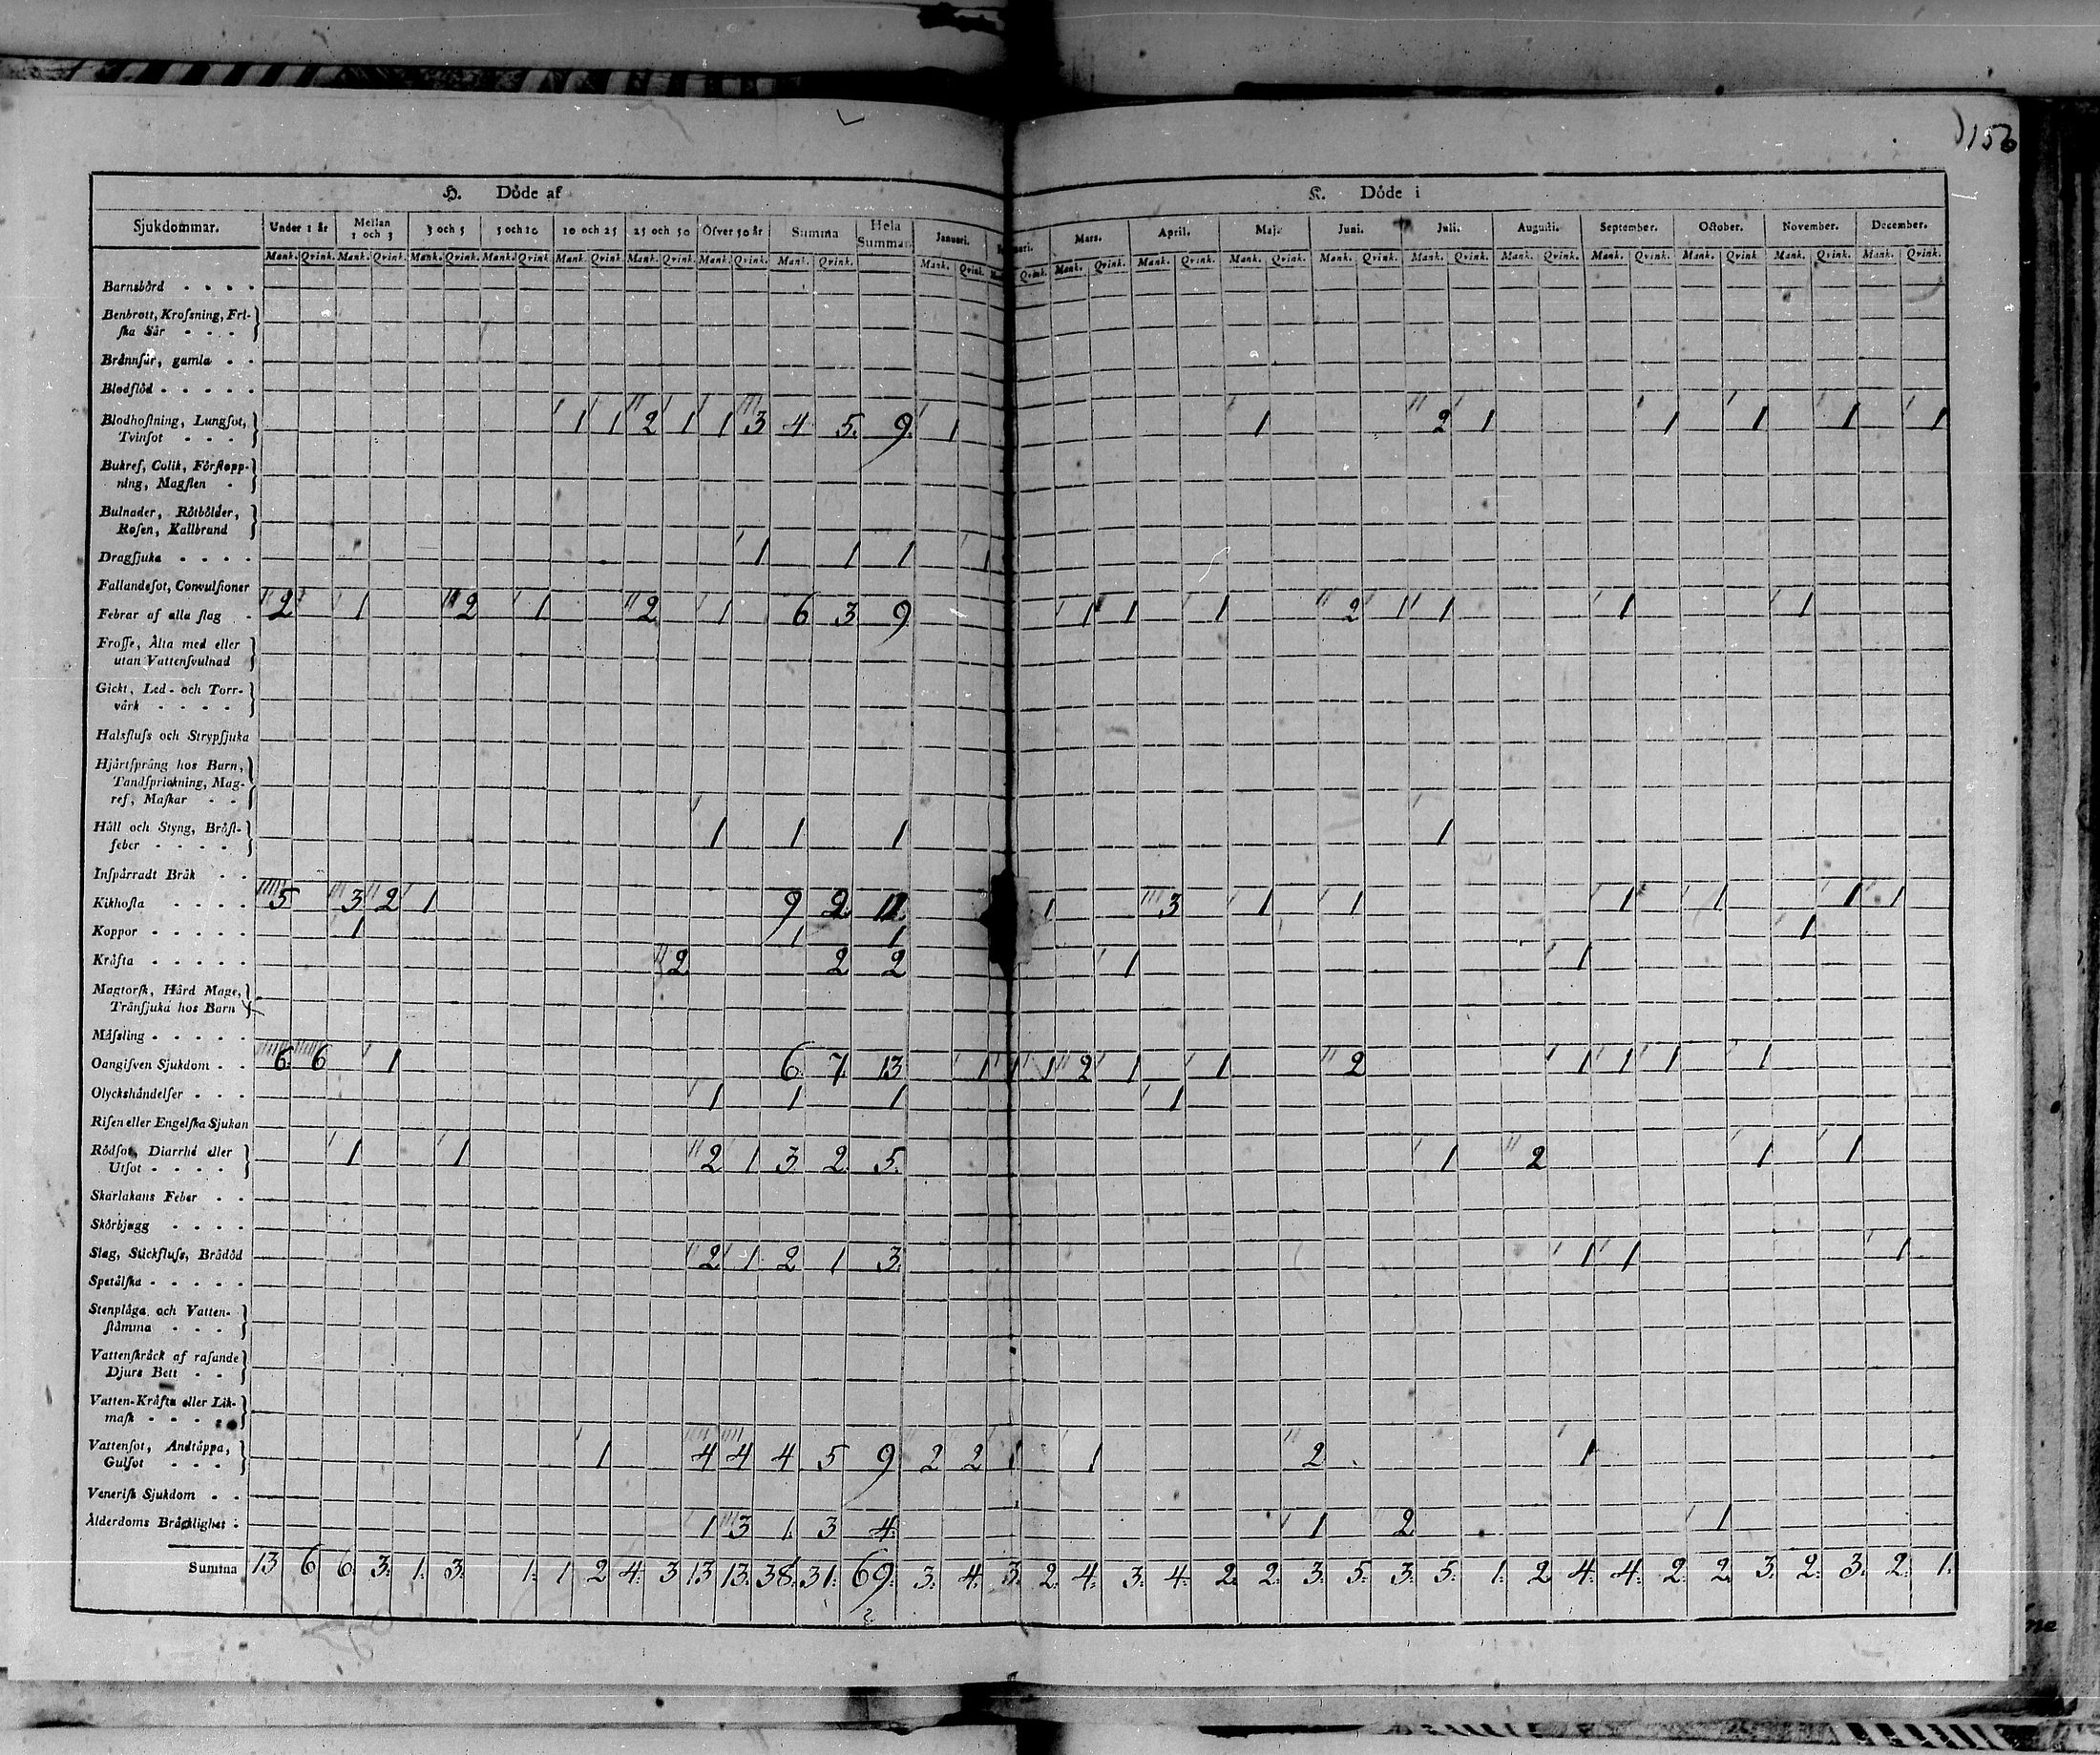 156
H. Döde af K. Döde i
Sjukdommar. Under 1 år Mellan 1 och 3 3 och 5 5 och 10 10 och 25 25 och 50 Öfver 50 år Summa Hela Summan Januari. Mars. April. Maji Juni. Juli. Augusti. September. October. November. December.
Mank. Qvink. Mank. Qvink. Mank. Qvink. Mank. Qvink. Mank. Qvink. Mank. Qvink. Mank. Qvink. Mank. Qvink. Mank. Qvink. Qvink. Mank. Qvink. Mank. Qvink. Mank. Qvink. Mank. Qvink. Mank. Qvink. Mank. Qvink. Mank. Qvink. Mank. Qvink. Mank. Qvink. Mank. Qvink.
Barnsbörd
Benbrott, Krofsning, Fri-
ſka Sår
Brännſår, gamla
Blodflöd
Blodhoſtning, Lungſot,
Tvinſot 1 1 2 1 1 3 4 5. 9. 1 1 2 1 1 1 1 1
Bukref, Colik, Förſtopp-
ning, Magſten
Bulnader, Rötbölder,
Roſen, Kallbrand
Dragſjuka 1 1 1 1
Fallandeſot, Convulſioner
Febrar af alla ſlag 2 1 2 1 2 1 6 3 9 1 1 1 2 1 1 1 1
Froſſe, Älta med eller
utan Vattenſvulnad
Gickt, Led- och Torr-
värk
Halsfluſs och Strypſjuka
Hjärtſprång hos Barn,
Tandſprickning, Mag-
ref, Maſkar
Håll och Styng, Bröſt-
feber 1 1 1 1
Inſpärradt Bråk
Kikhoſta 5 3 2 1 9 2 11 1 3 1 1 1 1 1 1
Koppor 1 1 1 1
Kräfta 2 2 2 1 1
Magtorſk, Hård Mage,
Tränſjuka hos Barn
Måſsling
Oangifven Sjukdom 6 6 1 6 7 13 1 1 1 2 1 1 2 1 1 1 1
Olyckshändelſer 1 1 1 1
Riſen eller Engelſka Sjukan
Rödſot, Diarrhé eller
Utſot 1 1 2 1 3 2 5. 1 2 1 1
Skarlakans Feber
Skörbjugg
Slag, Stickfluſs, Brådöd 2 1 2 1 3. 1 1 1
Spetälſka
Stenplåga och Vatten-
ſtämma
Vattenſkräck af raſande
Djurs Bett
Vatten-Kräfta eller Lik-
maſk
Vattenſot, Andtäppa,
Gulſot 1 4 4 4 5 9 2 2 1 1 2 1
Veneriſk Sjukdom
Ålderdoms Bräcklighet 1 3 1 3 4 1 2 1
Summa 13 6 6 3. 1. 3. 1. 1 2 4. 3 13 13. 38. 31. 69. 3. 4. 3. 2. 4. 3. 4. 2. 2. 3. 5. 3. 5. 1. 2 4. 4. 2. 2. 3. 2. 3. 2. 1.